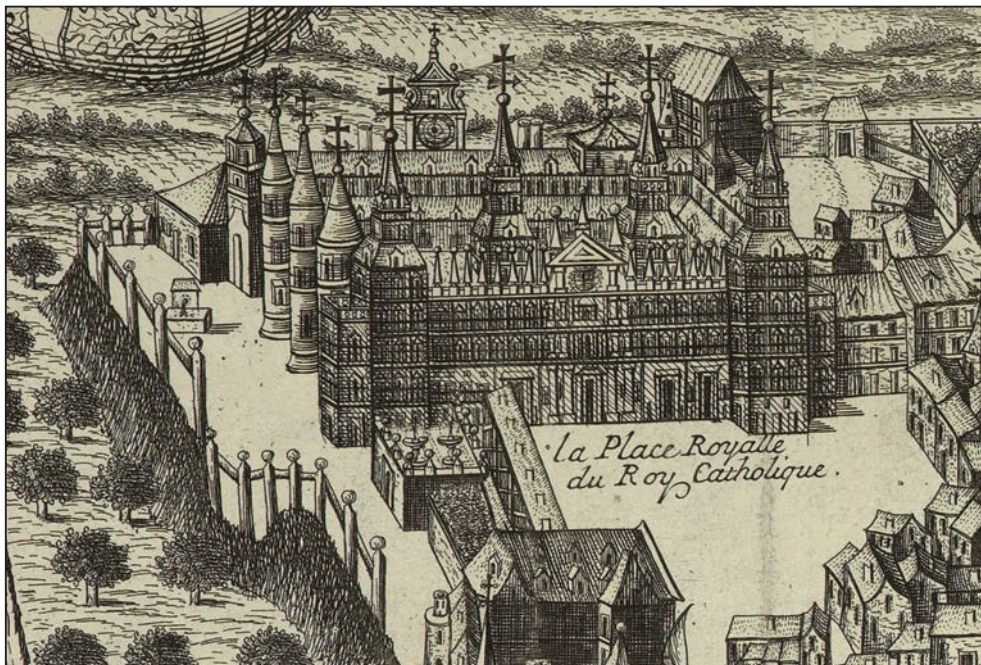 la Place Royalle
du Roy Catholique.